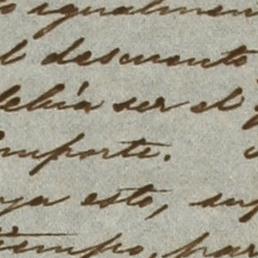 igualmen
l descuento
debía ser el
importe.
ya esto, su
tiempo, par